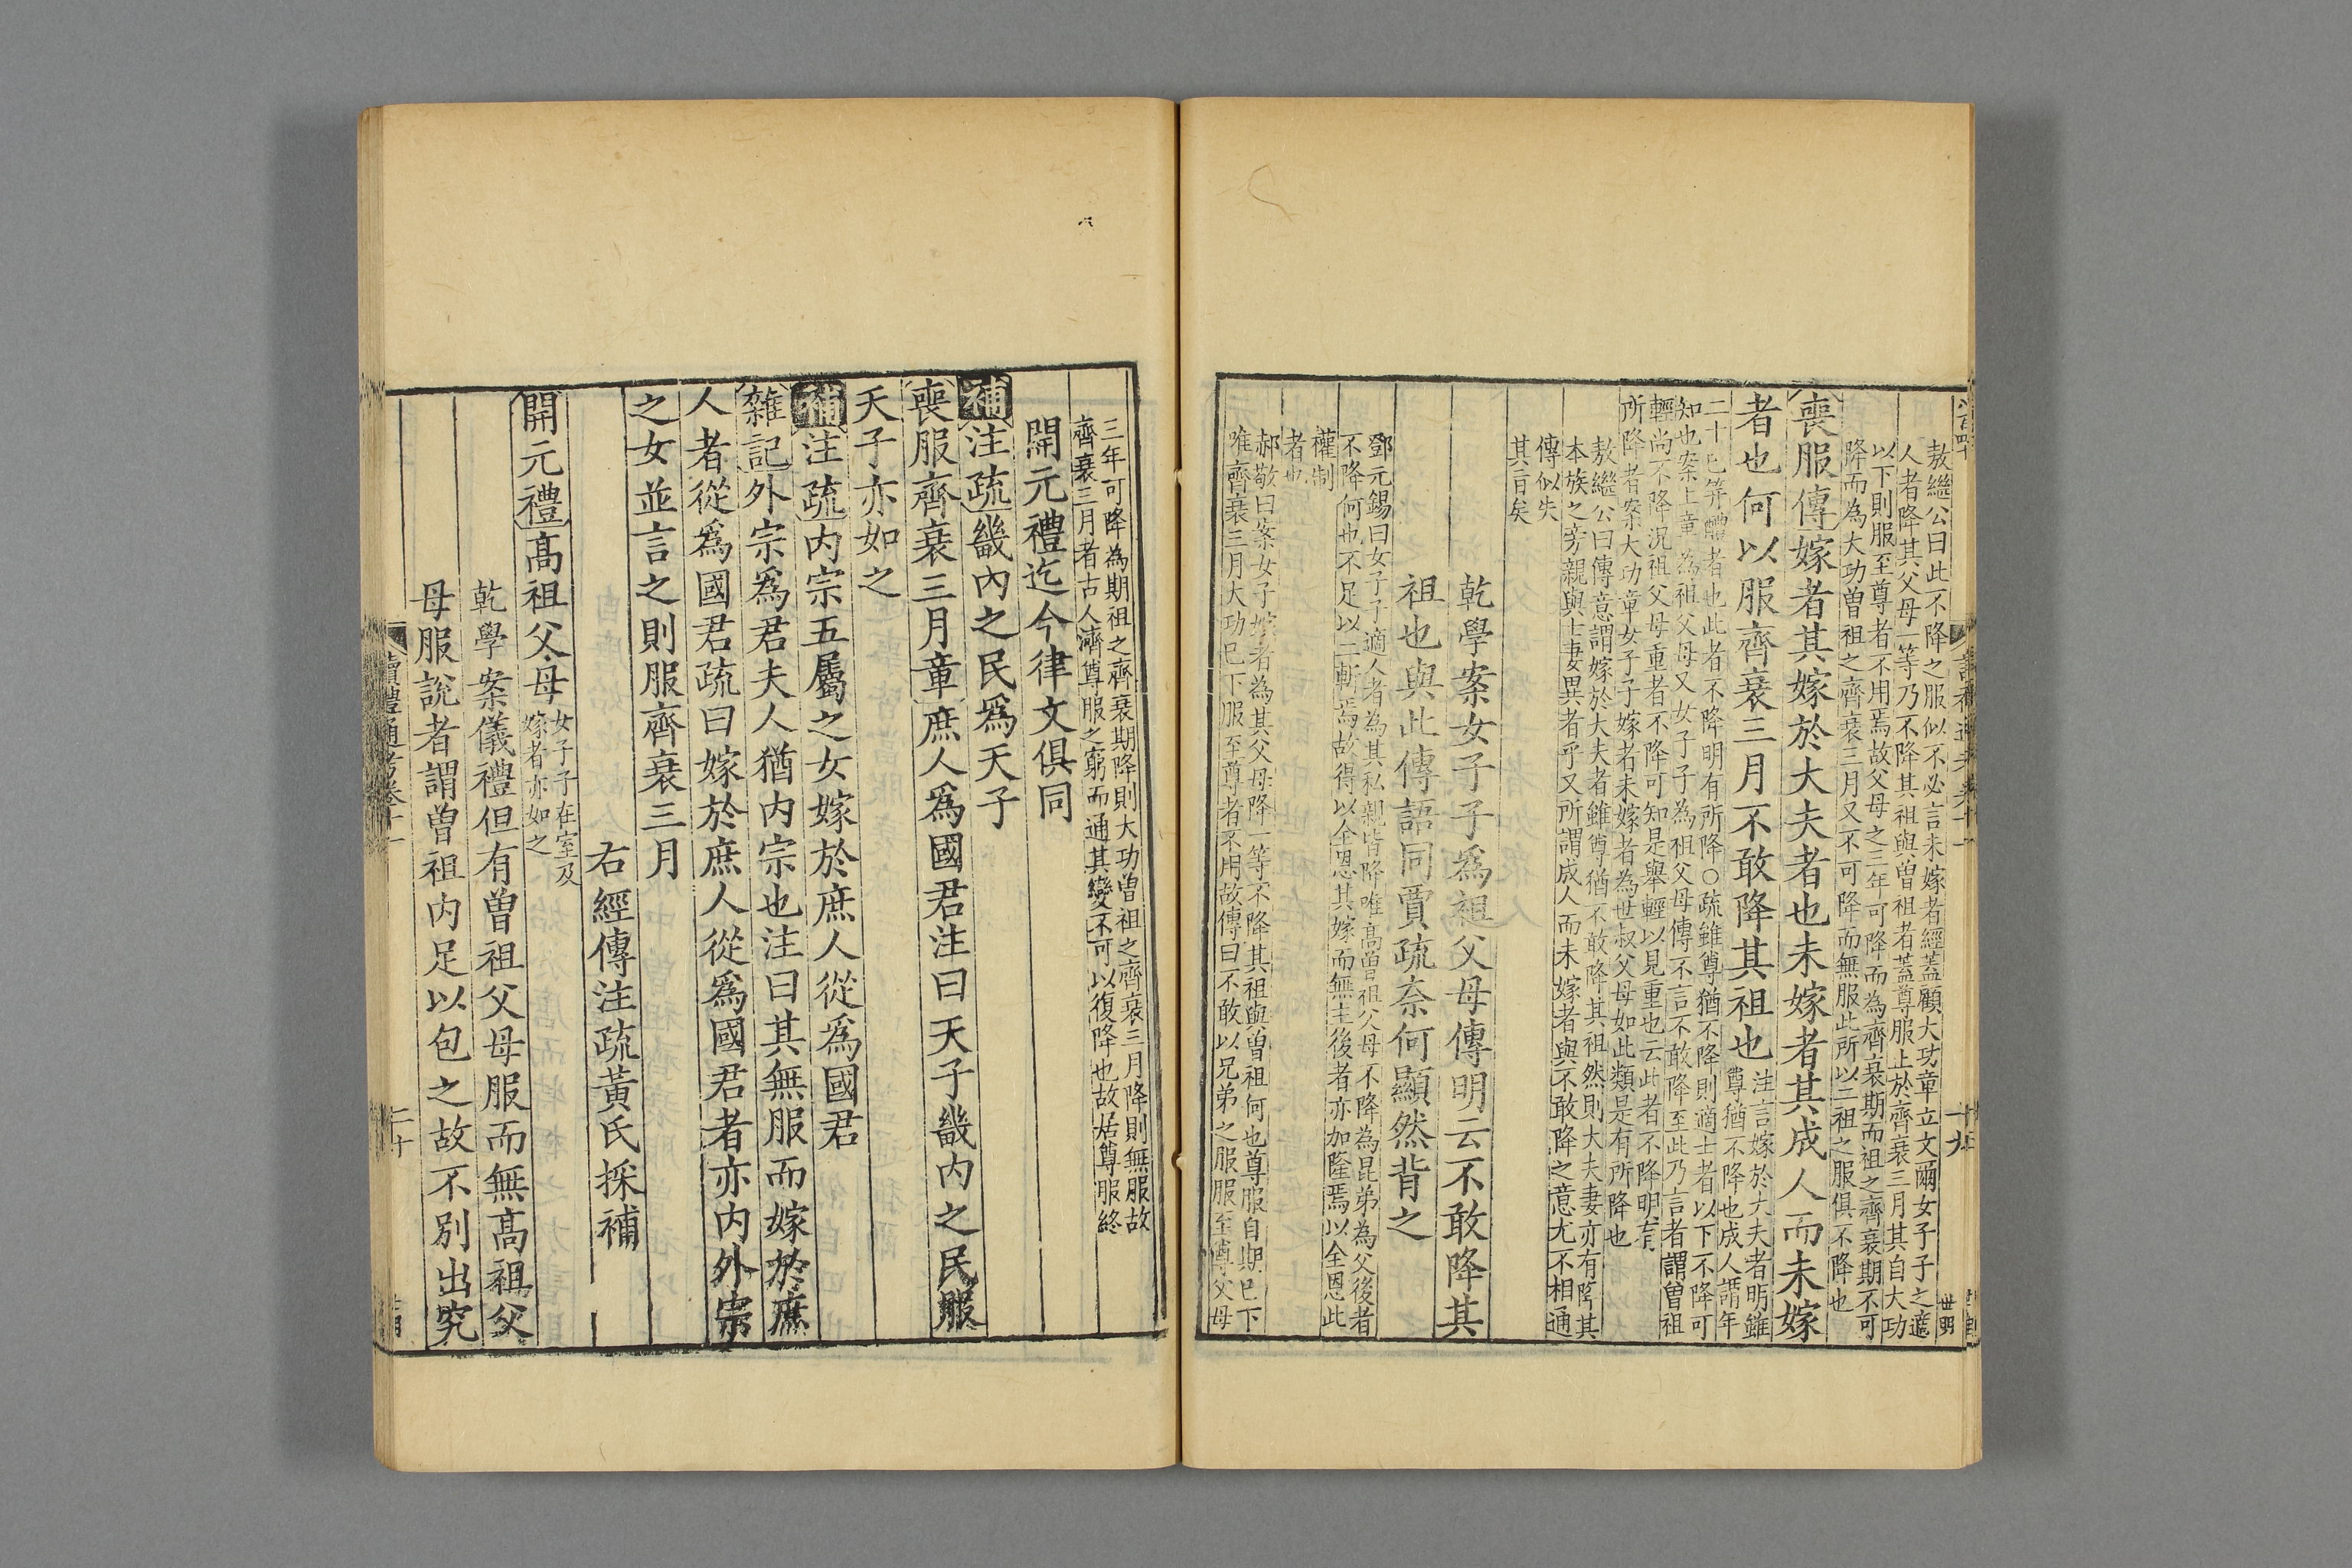 敖繼公曰此不降之服似不必言未嫁者經蓋顧大功章立文爾女子子之適
人者降其父母一等乃不降其祖與曾祖者蓋尊服止於齊衰三月其自大功
以下則服至尊者不用焉故父母之三年可降而為齊衰期而祖之齊衰期不可
降而為大功曾祖之齊衰三月又不可降而無服此所以二祖之服俱不降也
喪服傳嫁者其嫁於大夫者也未嫁者其成人而未嫁
者也何以服齊衰三月不敢降其祖也
注言嫁於大夫者明雖
尊猶不降也成人謂年
二十已笄醴者也此者不降明有所降○疏雖尊猶不降則適士者以下不降可
知也案上章為祖父母又女子子為祖父母傳不言不敢降至此乃言者謂曾祖
輕尚不降況祖父母重者不降可知是舉輕以見重也云此者不降明有
所降者案大功章女子子嫁者未嫁者為世叔父母如此類是有所降也
敖繼公曰傳意謂嫁於大夫者雖尊猶不敢降其祖然則大夫妻亦有降其
本族之旁親與士妻異者乎又所謂成人而未嫁者與不敢降之意尤不相通
傳似失
其旨矣
乾學案女子子爲祖父母傳明云不敢降其
祖也與此傳語同賈疏柰何顯然背之
鄧元錫曰女子子適人者為其私親皆降唯高曾祖父母不降為昆弟為父後者
不降何也不足以二斬焉故得以全恩其嫁而無主後者亦加隆焉以全恩此
權制
者也
郝敬曰案女子子嫁者為其父母降一等不降其祖與曾祖何也尊服自期已下
唯齊衰三月大功已下服至尊者不用故傳曰不敢以兄弟之服服至尊父母
三年可降為期祖之齊衰期降則大功曾祖之齊衰三月降則無服故
齊衰三月者古人濟尊服之窮而通其變不可以復降也故居尊服終
開元禮迄今律文俱同
補注疏畿內之民爲天子
喪服齊衰三月章庶人爲國君注曰天子畿內之民服
天子亦如之
補注疏内宗五屬之女嫁於庶人從爲國君
雜記外宗爲君夫人猶内宗也注曰其無服而嫁於庶
人者從爲國君疏曰嫁於庶人從爲國君者亦内外宗
之女並言之則服齊衰三月
右經傳注疏黃氏採補
開元禮高祖父母
女子子在室及
嫁者亦如之
乾學案儀禮但有曾祖父母服而無高祖父
母服說者謂曾祖内足以包之故不別出究
讀禮通考卷十一
二十